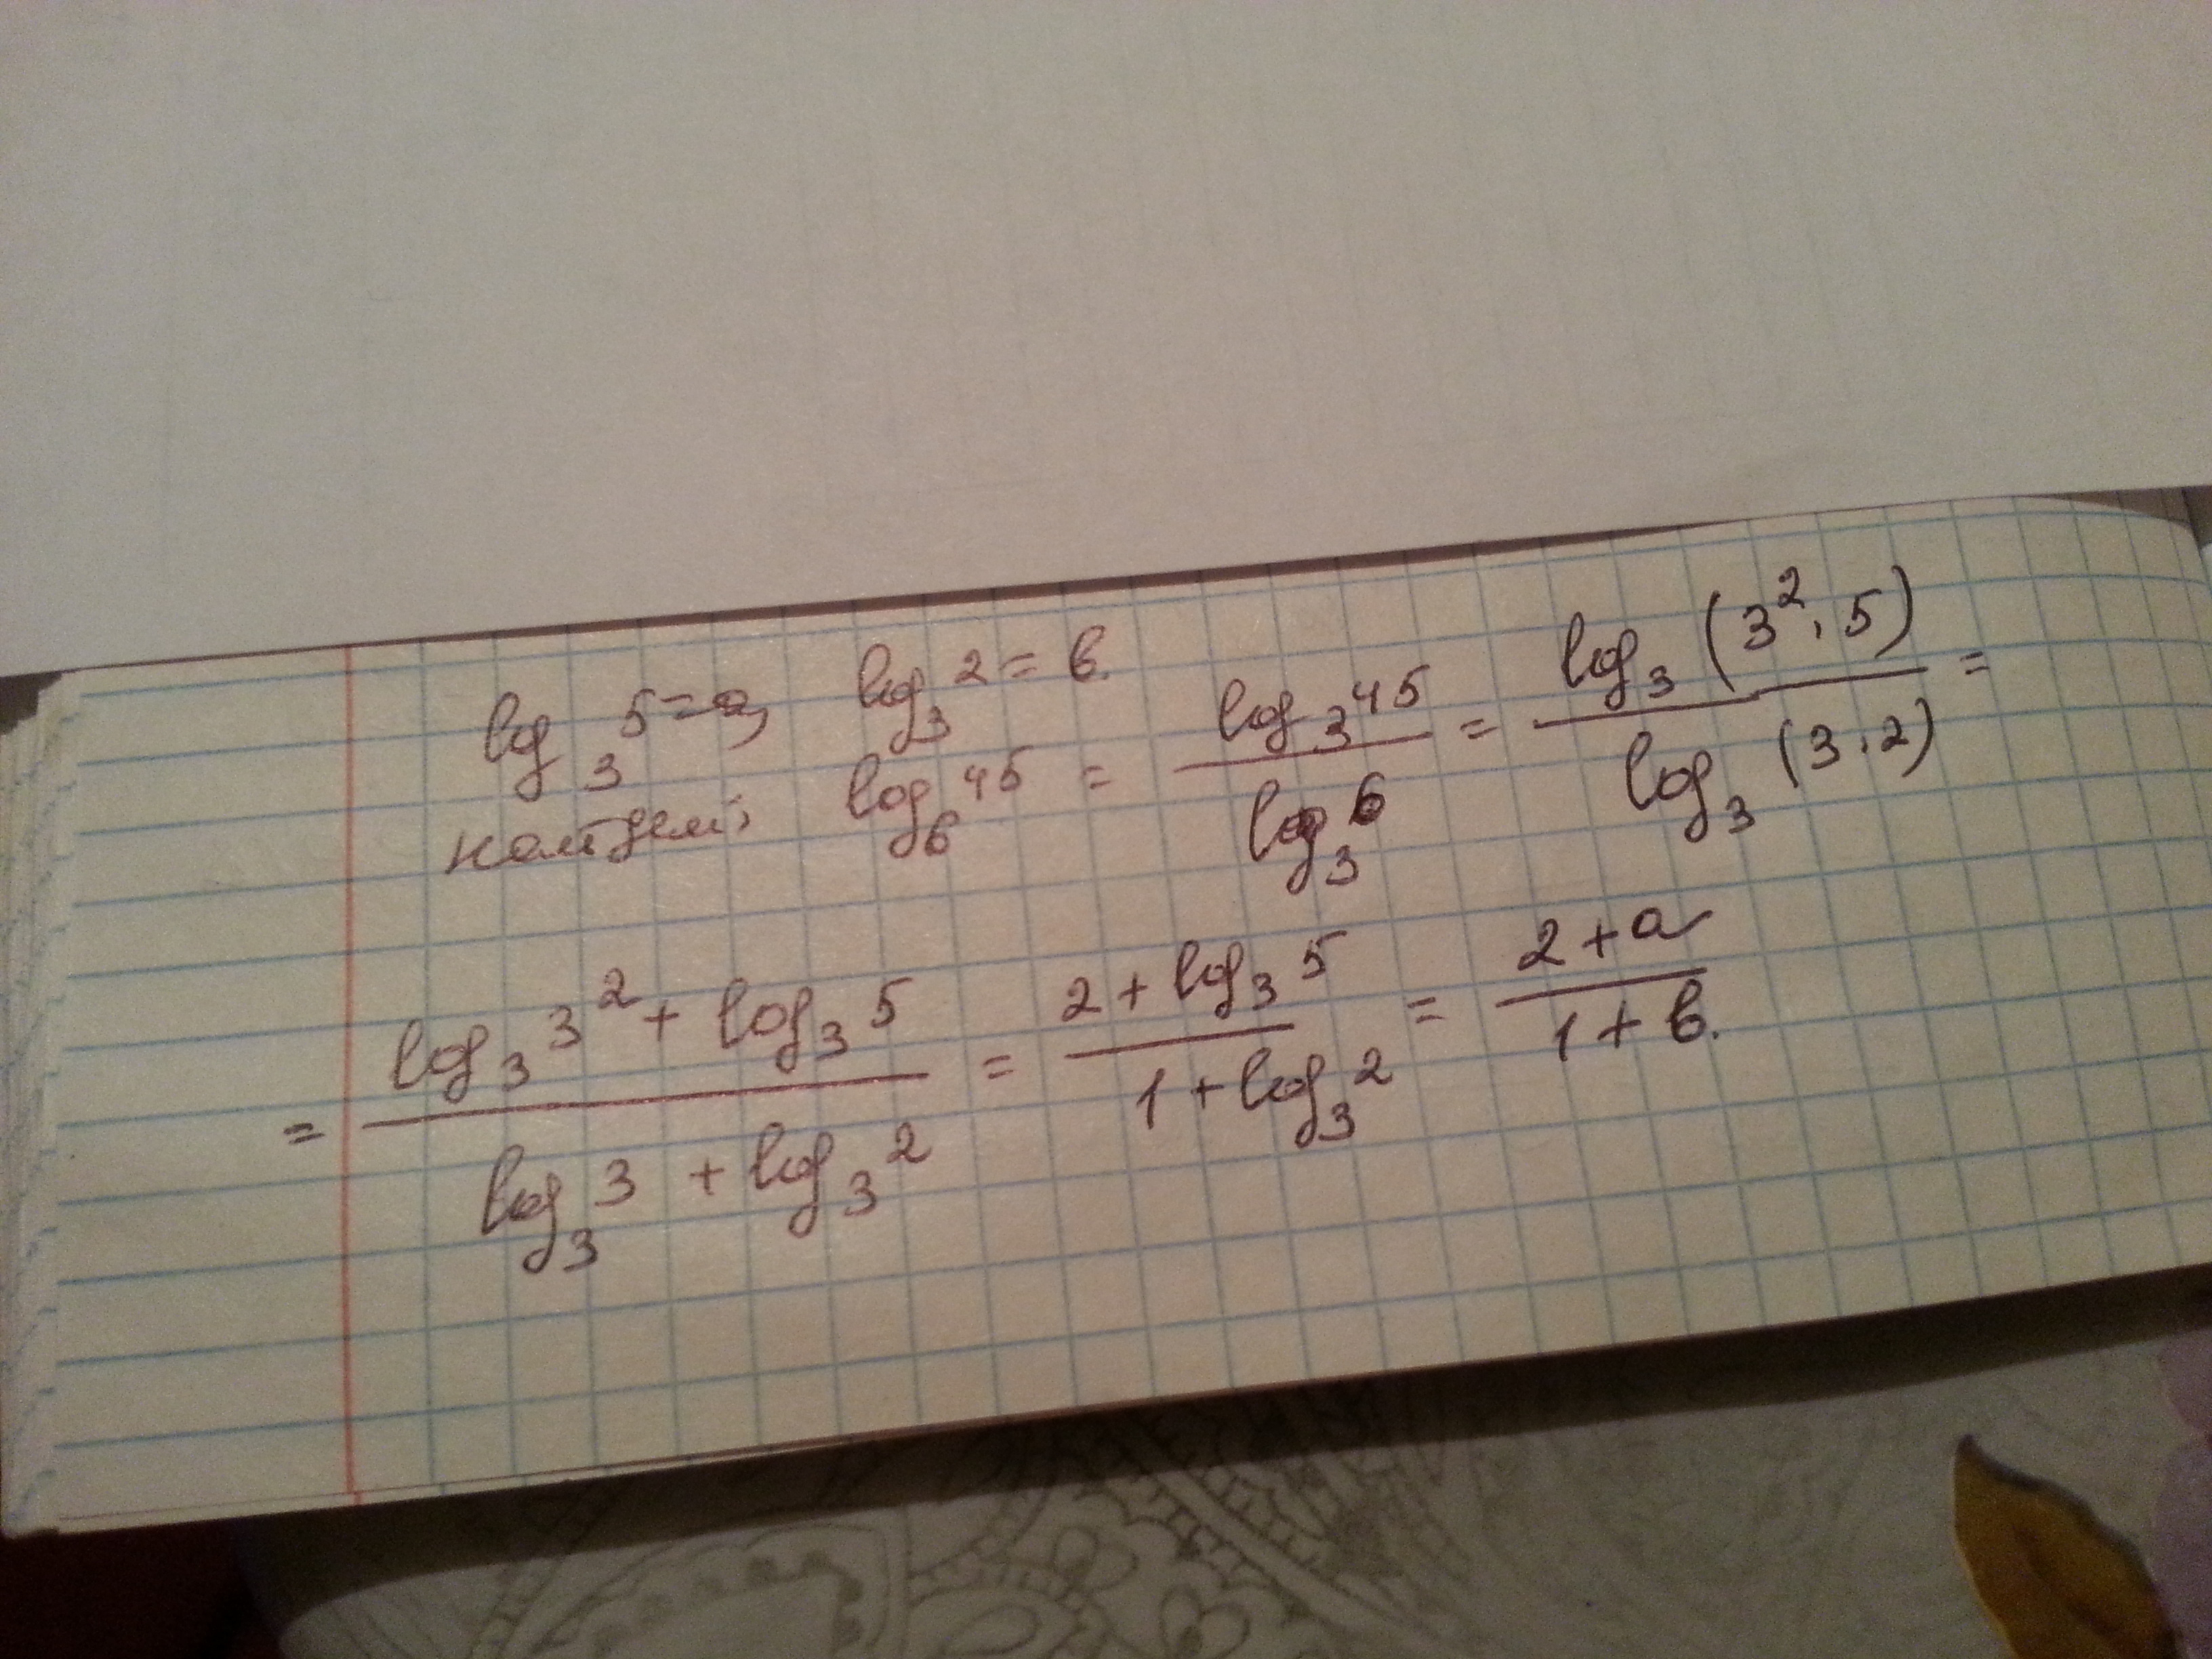 log₃ 5 = a, log₃ 2 = b.
найдем: log₆ 45 = log₃ 45 / log₃ 6 = log₃ (3² · 5) / log₃ (3 · 2) =
= (log₃ 3² + log₃ 5) / (log₃ 3 + log₃ 2) = (2 + log₃ 5) / (1 + log₃ 2) = (2 + a) / (1 + b).